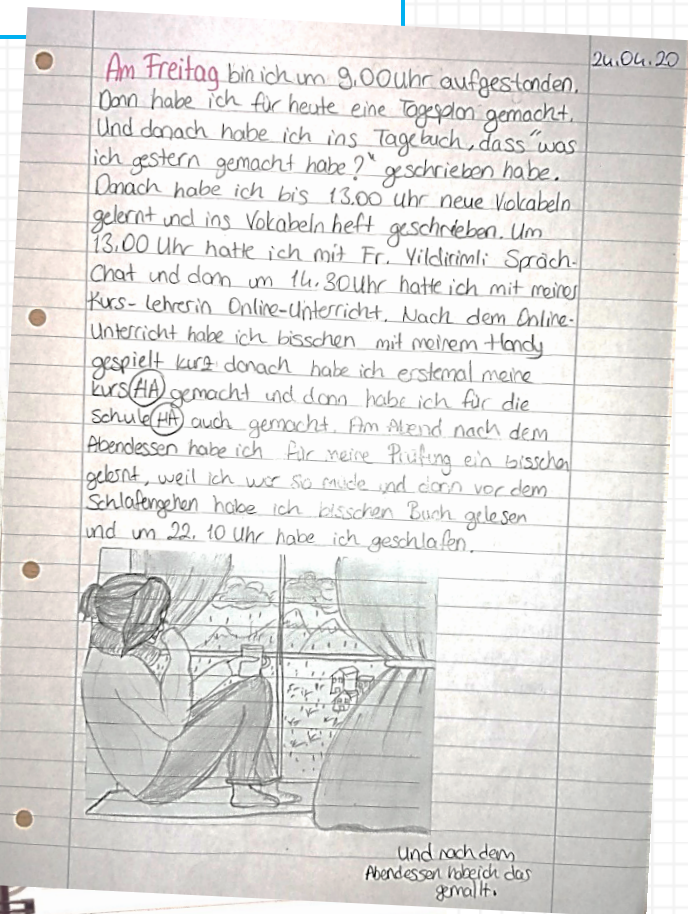 24.04.20
Am Freitag bin ich um 9.00 Uhr aufgestanden.
Dann habe ich für heute eine Tagesplan gemacht.
Und danach habe ich ins Tagebuch, dass "was
ich gestern gemacht habe?" geschrieben habe.
Danach habe ich bis 13.00 Uhr neue Vokabeln
gelernt und ins Vokabeln heft geschrieben. Um
13.00 Uhr hatte ich mit Fr. Yildirimli Spräch-
Chat und dann um 14.30 Uhr hatte ich mit meiner
Kurs-lehrerin Online-Unterricht. Nach dem Online-
Unterricht habe ich bisschen mit meinem Handy
gespielt kurz danach habe ich erstemal meine
kurs HA gemacht und dann habe ich für die
schule HA auch gemacht. Am Abend nach dem
Abendessen habe ich für meine Prüfung ein bisschen
gelernt, weil ich war so müde und dann vor dem
Schlafengehen habe ich bisschen Buch gelesen
und um 22.10 Uhr habe ich geschlafen.
Und nach dem
Abendessen habe ich das
gemallt.